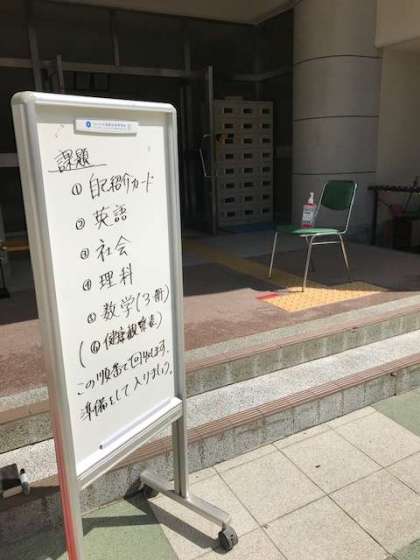 課題
① 自己紹介カード
② 英語
③ 社会
④ 理科
⑤ 数学(3冊)
(⑥ 健康観察表)
この順番で回収します。
準備をして入りましょう。